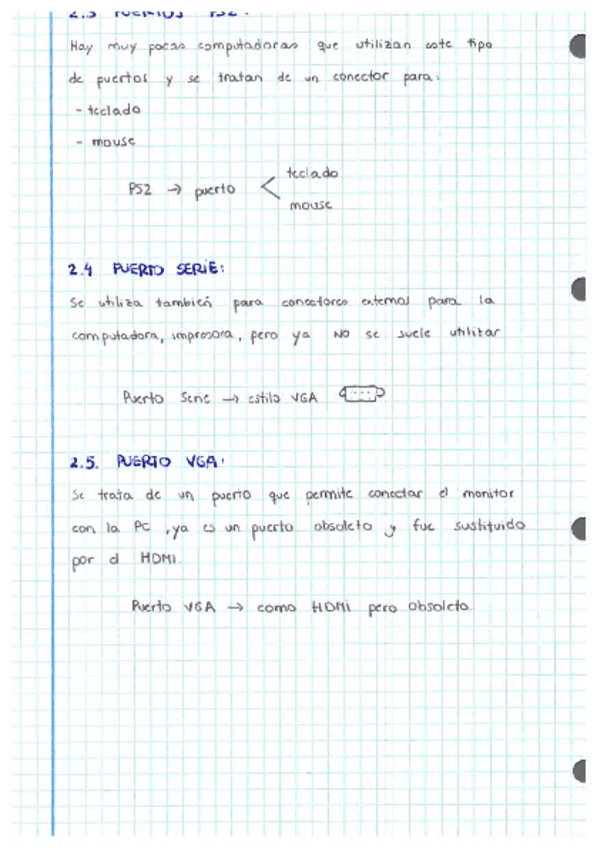 2.3 PUERTOS PS2:
Hay muy pocas computadoras que utilizan este tipo
de puertos y se tratan de un conector para:
- teclado
- mouse
PS2 → puerto < teclado
mouse
2.4 PUERTO SERIE:
Se utiliza también para conectores external para la
computadora, impresora, pero ya NO se suele utilizar
Puerto Serie → estilo VGA
2.5. PUERTO VGA:
Se trata de un puerto que permite conectar el monitor
con la PC, ya es un puerto obsoleto y fue sustituido
por el HDMI.
Puerto VGA → como HDMI pero obsoleto.